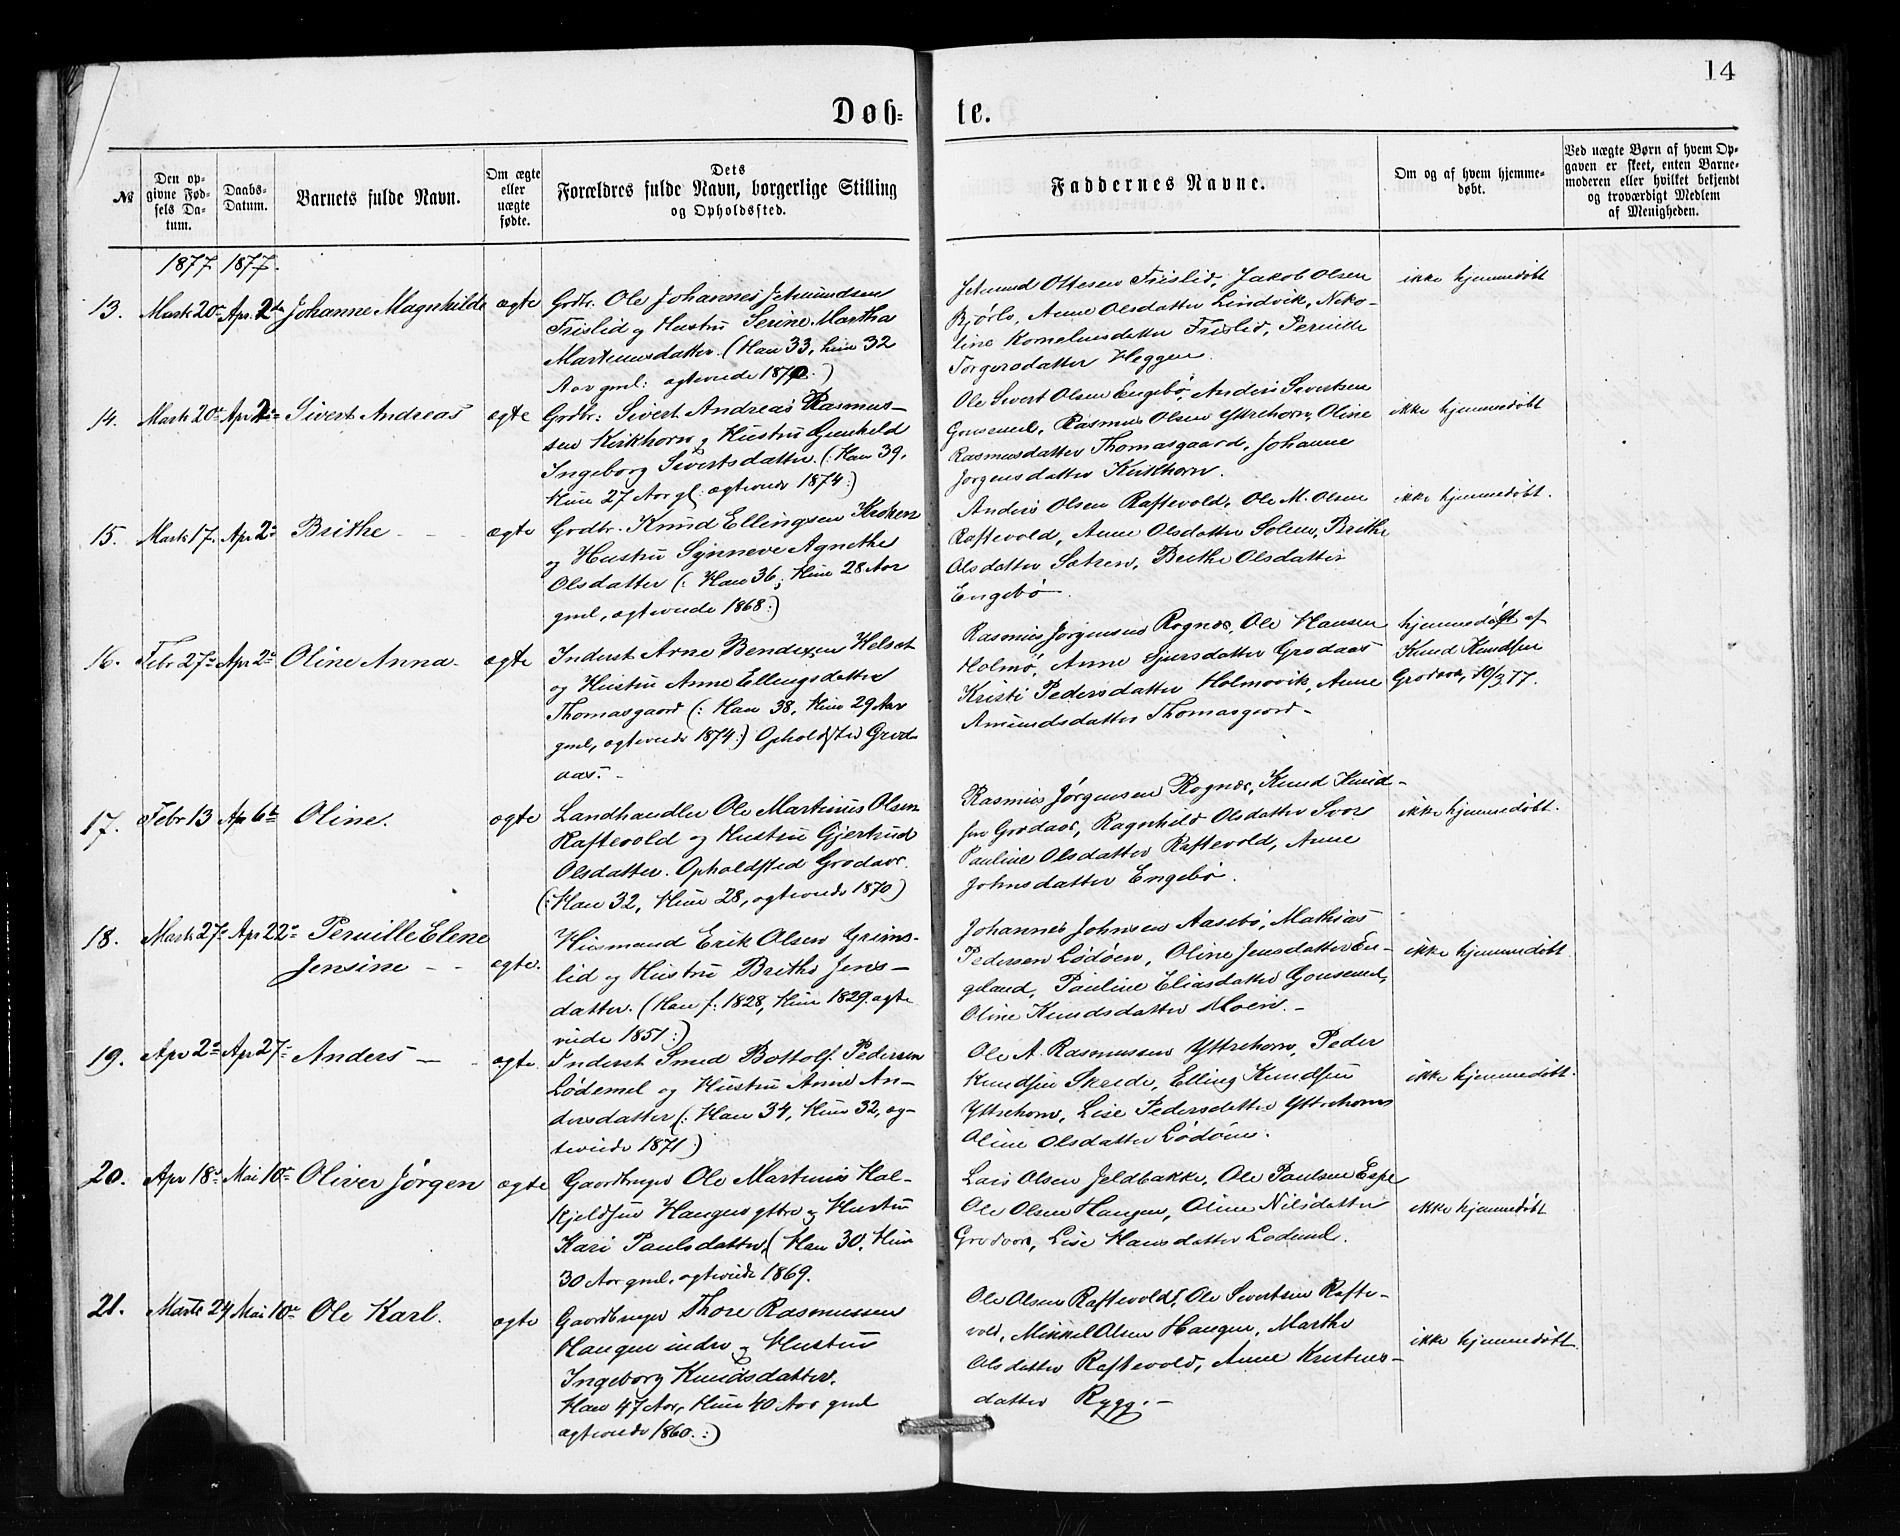 14
Døb= te.
№
Den op-
givne Fød-
sels Da-
tum.
Daabs-
Datum.
Barnets fulde Navn.
Om ægte
eller
uægte
fødte.
Dets
Forældres fulde Navn, borgerlige Stilling
og Opholdssted.
Faddernes Navne.
Om og af hvem hjemme-
døbt.
Ved uægte Børn af hvem Op-
gaven er skeet, enten Barne-
moderen eller hvilket bekjendt
og troværdigt Medlem
af Menigheden.
1877 1877.
13. Marts 20 Apr. 2 Johanne Magnhilde ægte
Grdbr. Ole Johannes Jetmundsen
Frislid og Hustru Serine Martha
Martinusdatter. (Han 33, hun 32
Aar gml: ægteviede 1870.)
Jetmund Ottesen Frislid, Jakob Olsen
Bjørlo, Anne Olsdatter Lindvik, Niko-
line Korneliusdatter Frislid, Pernille
Torgersdatter Heggen.
ikke hjemmedøbt
14. Marts 20 Apr 2 Sivert Andreas ægte
Grdbr: Sivert Andreas Rasmus-
sen Kirkhorn og Hustru Gunhild
Ingeborg Sivertsdatter. (: Han 39,
Hun 27 Aar gl: ægteviede 1874:)
Ole Sivert Olsen Engebø, Anders Sivertsen
Gousemel, Rasmus Olsen Yttrehorn, Oline
Rasmusdatter Thomasgaard, Johanne
Jørgensdatter Kirkhorn.
ikke hjemmedøbt
15. Marts 17. Apr 2 Brithe ægte
Grdbr. Knud Ellingsen Kroken
og Hustru Synneve Agnethe
Olsdatter (: Han 36, Hun 28 Aar
gml, ægteviede 1868:)
Anders Olsen Raftevold, Ole M. Olsen
Raftevold, Anne Olsdatter Solem, Brithe
Olsdatter Sætren, Brithe Olsdatter
Engebø.
ikke hjemmedøbt.
16. Febr 27 Apr 2 Oline Anna ægte
Inderst Arne Bendixen Helset
og Hustru Anne Ellingsdatter
Thomasgaard (: Han 38, Hun 29 Aar
gml, ægteviede 1874:) Opholdssted Grod-
aas.
Rasmus Jørgensen Rognes, Ole Hansen
Holmø, Anne Sjursdatter Grodaas
Kristi Pedersdatter Holmøvik, Anne
Amundsdatter Thomasgaard.
hjemmedøbt af
Knud Knudsen
Grodaas, 10/3 77.
17. Febr 13 Apr 6 Oline. ægte
Landhandler Ole Martinus Olsen
Raftevold og Hustru Gjertrud
Olsdatter. Opholdssted Grodaas.
(: Han 32, Hun 28, ægteviede 1870)
Rasmus Jørgensen Rognes, Knud Knud-
sen Grodaas, Ragnhild Olsdatter Svor
Pauline Olsdatter Raftevold, Anne
Johnsdatter Engebø.
ikke hjemmedøbt.
18. Marts 27 Apr 22 Pernille Elene
Jensine ægte.
Husmand Erik Olsen Grims-
lid og Hustru Brithe Jens-
datter. (Han f. 1828, Hun 1829. ægte
viede 1851:)
Johannes Johnsen Aasebø, Mathias
Pedersen Lødøen, Oline Jensdatter En-
geland, Pauline Eliasdatter Gousemel,
Oline Knudsdatter Moen.
ikke hjemmedøbt
19. Apr 2 Apr 27 Anders ægte.
Inderst Smed Bottolf Pedersen
Lødemel og Hustru Anne An-
dersdatter (: Han 34, Hun 32, æg-
teviede 1871:)
Ole A. Rasmussen Yttrehorn, Peder
Knudsen Skrede, Elling Knudsen
Yttrehorn, Lise Pedersdatter Yttrehorn
Oline Olsdatter Lødøen.
ikke hjemmedøbt.
20. Apr 18 Mai 10 Oliver Jørgen ægte
Gaardbruger Ole Martinus Hal-
kjeldsen Haugen yttre og Hustru
Kari Paulsdatter, (Han 30, Hun
30 Aar gml, ægteviede 1869.
Lars Olsen Jeldbakke, Ole Paulsen Espe
Ole Olsen Haugen, Oline Nilsdatter
Grodaas, Lise Hansdatter Lødemel.
ikke hjemmedøbt
21. Marts 24 Mai 10 Ole Karl. ægte
Gaardbruger Thore Rasmussen
Haugen indre og Hustru
Ingeborg Knudsdatter,
Han 47 Aar, Hun 40 Aar gml
ægteviede 1860.:)
Ole Olsen Raftevold, Ole Sivertsen Rafte-
vold, Mikkel Olsen Haugen, Marthe
Olsdatter Raftevold, Anne Kristens-
datter Rygg.
ikke hjemmedøbt.